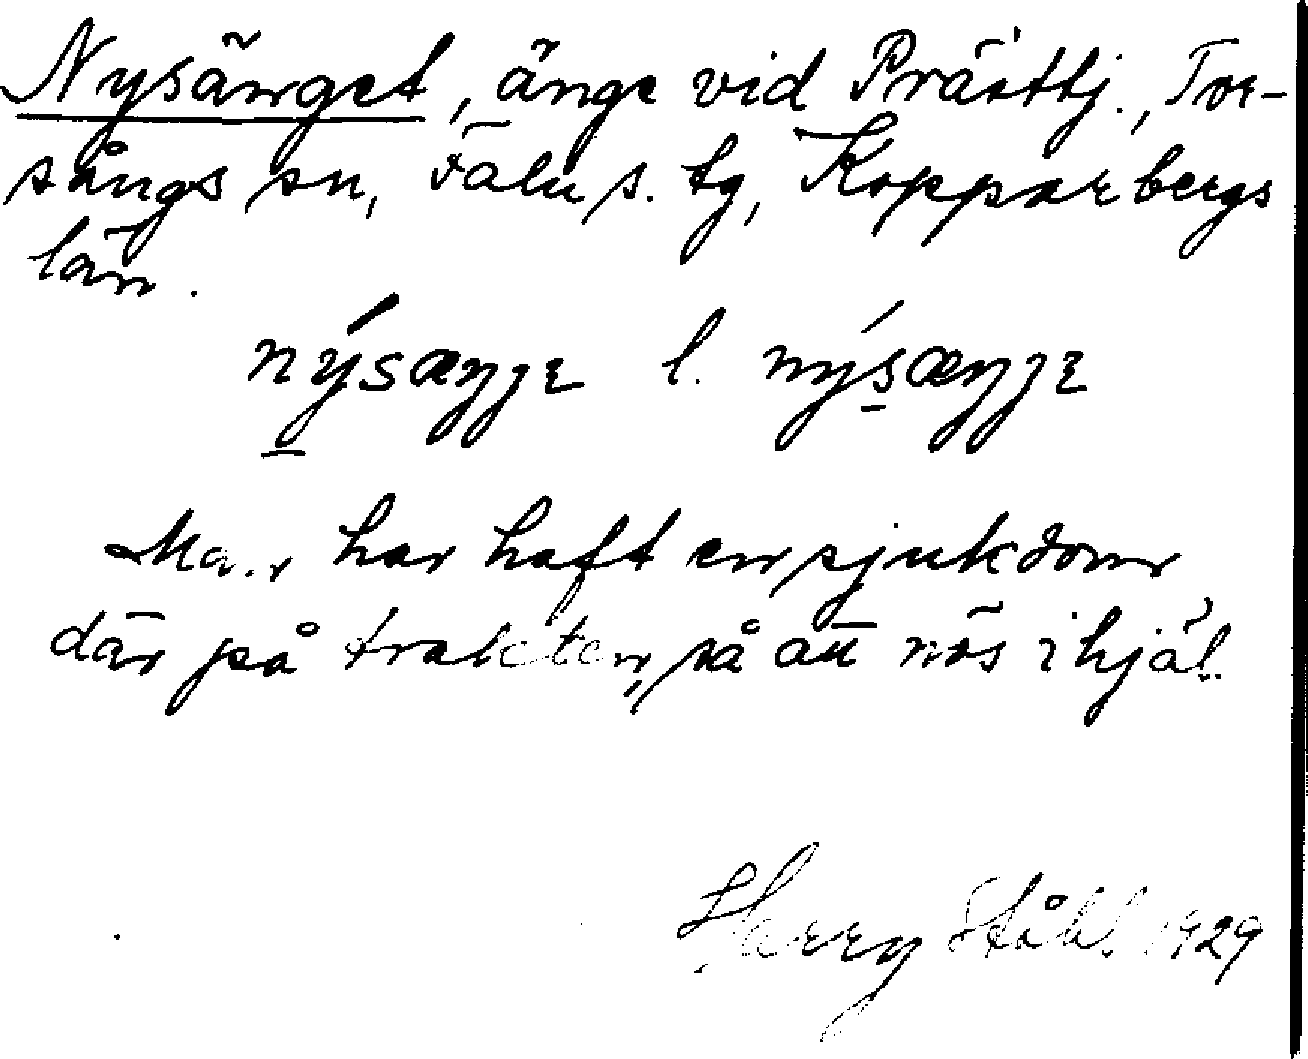 Nysänget, änge vid Prästtj., Tor-
sångs sn, Falu s. tg, Kopparbergs
län.
nýsæŋge l. nýsæŋge
Man har haft en sjukdom
där på trakten, så att nös ihjäl.
Harry Ståhl 1929